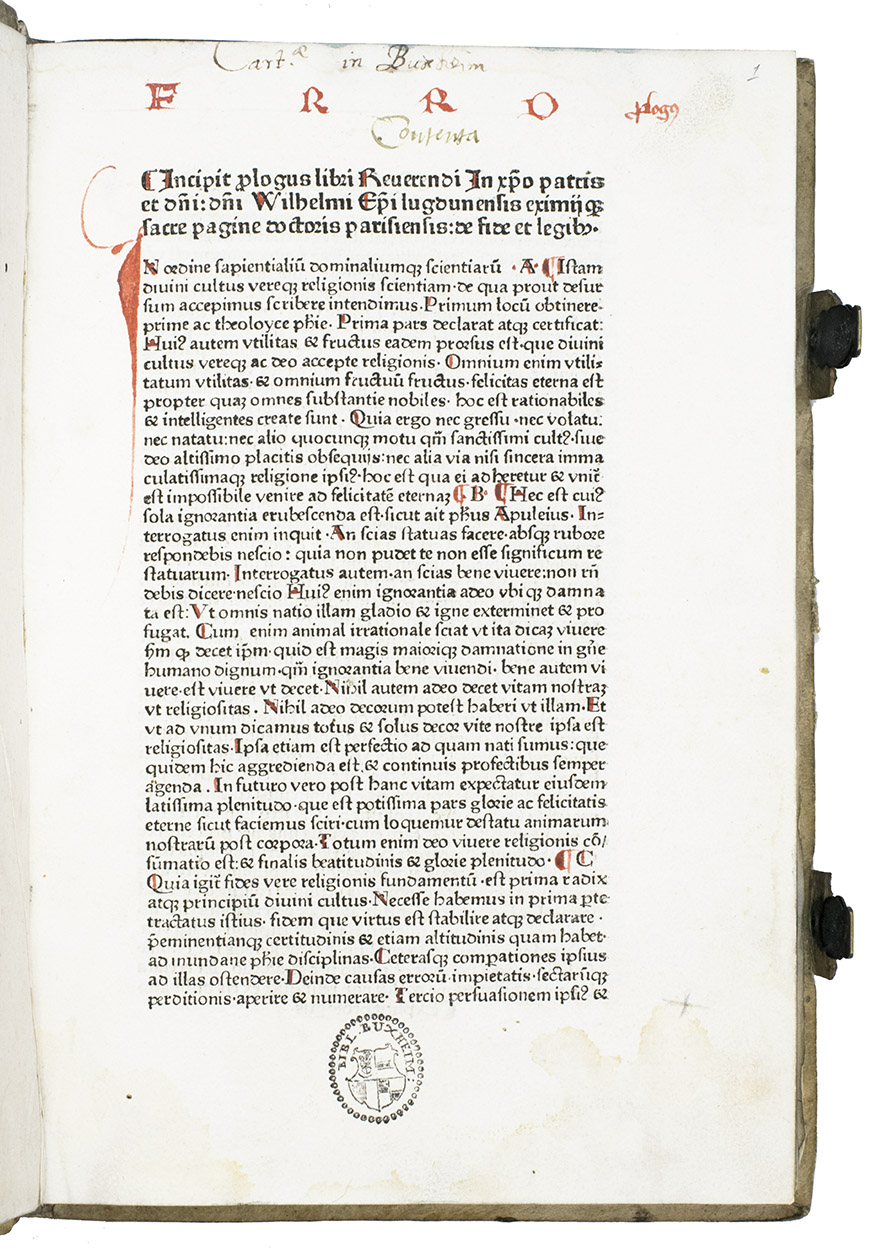 Cart.ᵃᵉ in Buxheim
1
F R R O plogꝰ
Contenta
¶ Incipit ꝓlogus libri Reuerendi In xp̄o patris
et dn̄i: dn̄i Wilhelmi Ep̄i lugdunensis eximij qꝫ
sacre pagine doctoris parisiensis: de fide et legibꝰ.
IN ordine sapientialiū dominaliumqꝫ scientiarū · A · ¶ Istam
diuini cultus vereqꝫ religionis scientiam · de qua prout desur
sum accepimus scribere intendimus. Primum locū obtinere
prime ac theoloyce ph̄ie. Prima pars declarat atqꝫ certificat:
Huiꝰ autem vtilitas ⁊ fructus eadem prorsus est · que diuini
cultus vereqꝫ ac deo accepte religionis. Omnium enim vtili-
tatum vtilitas · ⁊ omnium fructuū fructus · felicitas eterna est
propter quaꝫ omnes substantie nobiles · hoc est rationabiles
⁊ intelligentes create sunt. Quia ergo nec gressu · nec volatu:
nec natatu: nec alio quocunqꝫ motu qm̄ sanctissimi cultꝰ · siue
deo altissimo placitis obsequijs: nec alia via nisi sincera imma
culatissimaqꝫ religione ipsiꝰ · hoc est qua ei adheretur ⁊ vnit̄
est impossibile venire ad felicitatē eternaꝫ ¶ B · ¶ Hec est cuiꝰ
sola ignorantia erubescenda est · sicut ait ph̄us Apuleius. In=
terrogatus enim inquit · An scias statuas facere · absqꝫ rubore
respondebis nescio: quia non pudet te non esse significum re
statuarum. Interrogatus autem · an scias bene viuere: non rn̄
debis dicere · nescio Huiꝰ enim ignorantia adeo vbiqꝫ damna
ta est: Vt omnis natio illam gladio ⁊ igne exterminet ⁊ pro
fugat. Cum enim animal irrationale sciat vt ita dicaꝫ viuere
ẜm ꝙ decet ip̄m · quid est magis maioriqꝫ damnatione in gn̄e
humano dignum · qm̄ ignorantia bene viuendi · bene autem vi
uere · est viuere vt decet · Nihil autem adeo decet vitam nostraꝫ
vt religiositas. Nihil adeo decorum potest haberi vt illam. Et
vt ad vnum dicamus totus ⁊ solus decor vite nostre ipsa est
religiositas · Ipsa etiam est perfectio ad quam nati sumus: que
quidem hic aggredienda est · ⁊ continuis profectibus semper
agenda. In futuro vero post hanc vitam expectatur eiusdem
latissima plenitudo · que est potissima pars glorie ac felicitatis
eterne sicut faciemus sciri · cum loquemur destatu animarum
nostrarū post corpora · Totum enim deo viuere religionis cō/
sūmatio est: ⁊ finalis beatitudinis ⁊ glorie plenitudo · ¶ C
Quia igit̄ fides vere religionis fundamentū · est prima radix
atqꝫ principiū diuini cultus · Necesse habemus in prima ꝑte
tractatus istius · fidem que virtus est stabilire atqꝫ declarare ·
p̄eminentianqꝫ certitudinis ⁊ etiam altitudinis quam habet
ad mundane ph̄ie disciplinas · Ceterasqꝫ comꝑationes ipsius
ad illas ostendere · Deinde causas errorū impietatis · sectarūqꝫ
perditionis · aperire ⁊ numerare · Tercio persuasionem ipsiꝰ ⁊
BIBL. BUXHEIM: